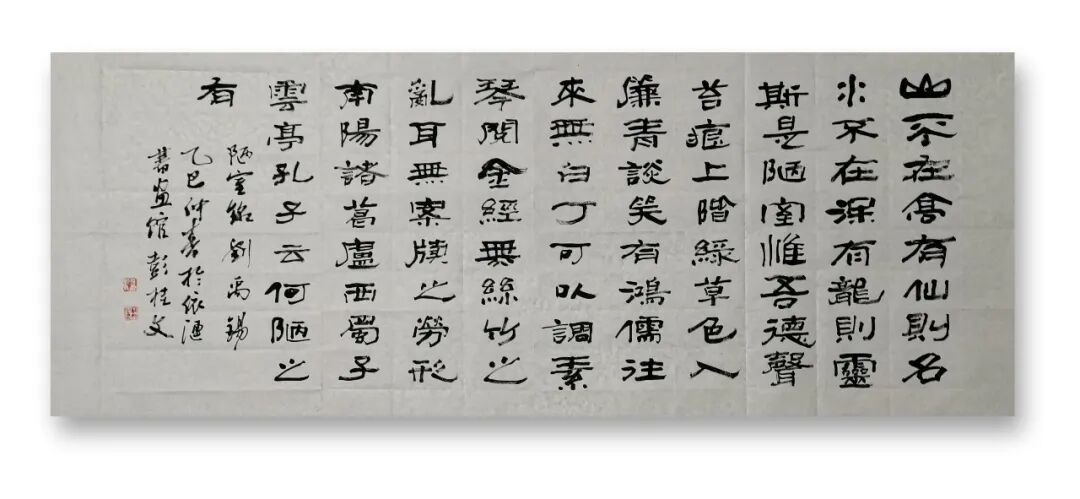 山不在高有仙則名
水不在深有龍則靈
斯是陋室惟吾德聲
苔痕上階綠草色入
簾青談笑有鴻儒注
來無白丁可以調素
琴閱金經無絲竹之
亂耳無案牘之勞形
南陽諸葛盧西蜀子
雲亭孔子云何陋之
有
陋室銘劉禹錫
乙巳仲春於依
書畫館彭桂文